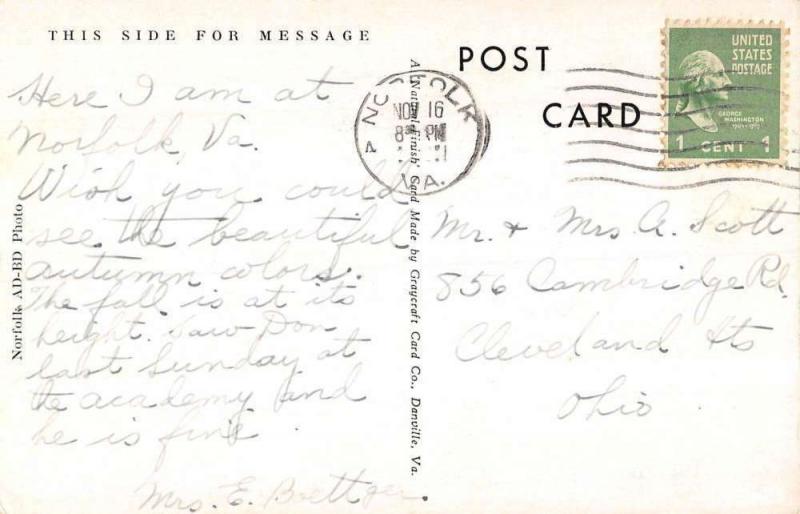 THIS SIDE FOR MESSAGE
Here I am at
Norfolk, Va.
Wish you could
see the beautiful
autumn colors.
The fall is at its
height. Saw Don
last Sunday at
the academy and
he is fine
Mrs. E. Boettger.
Norfolk AD-BD Photo
A "Natural Finish" Card Made by Graycraft Card Co., Danville, Va.
POST
CARD
NORFOLK
NOV 16
8 PM
VA.
UNITED
STATES
POSTAGE
GEORGE
WASHINGTON
1 CENT 1
Mr. & Mrs A. Scott
856 Cambridge Rd.
Cleveland Hts
Ohio